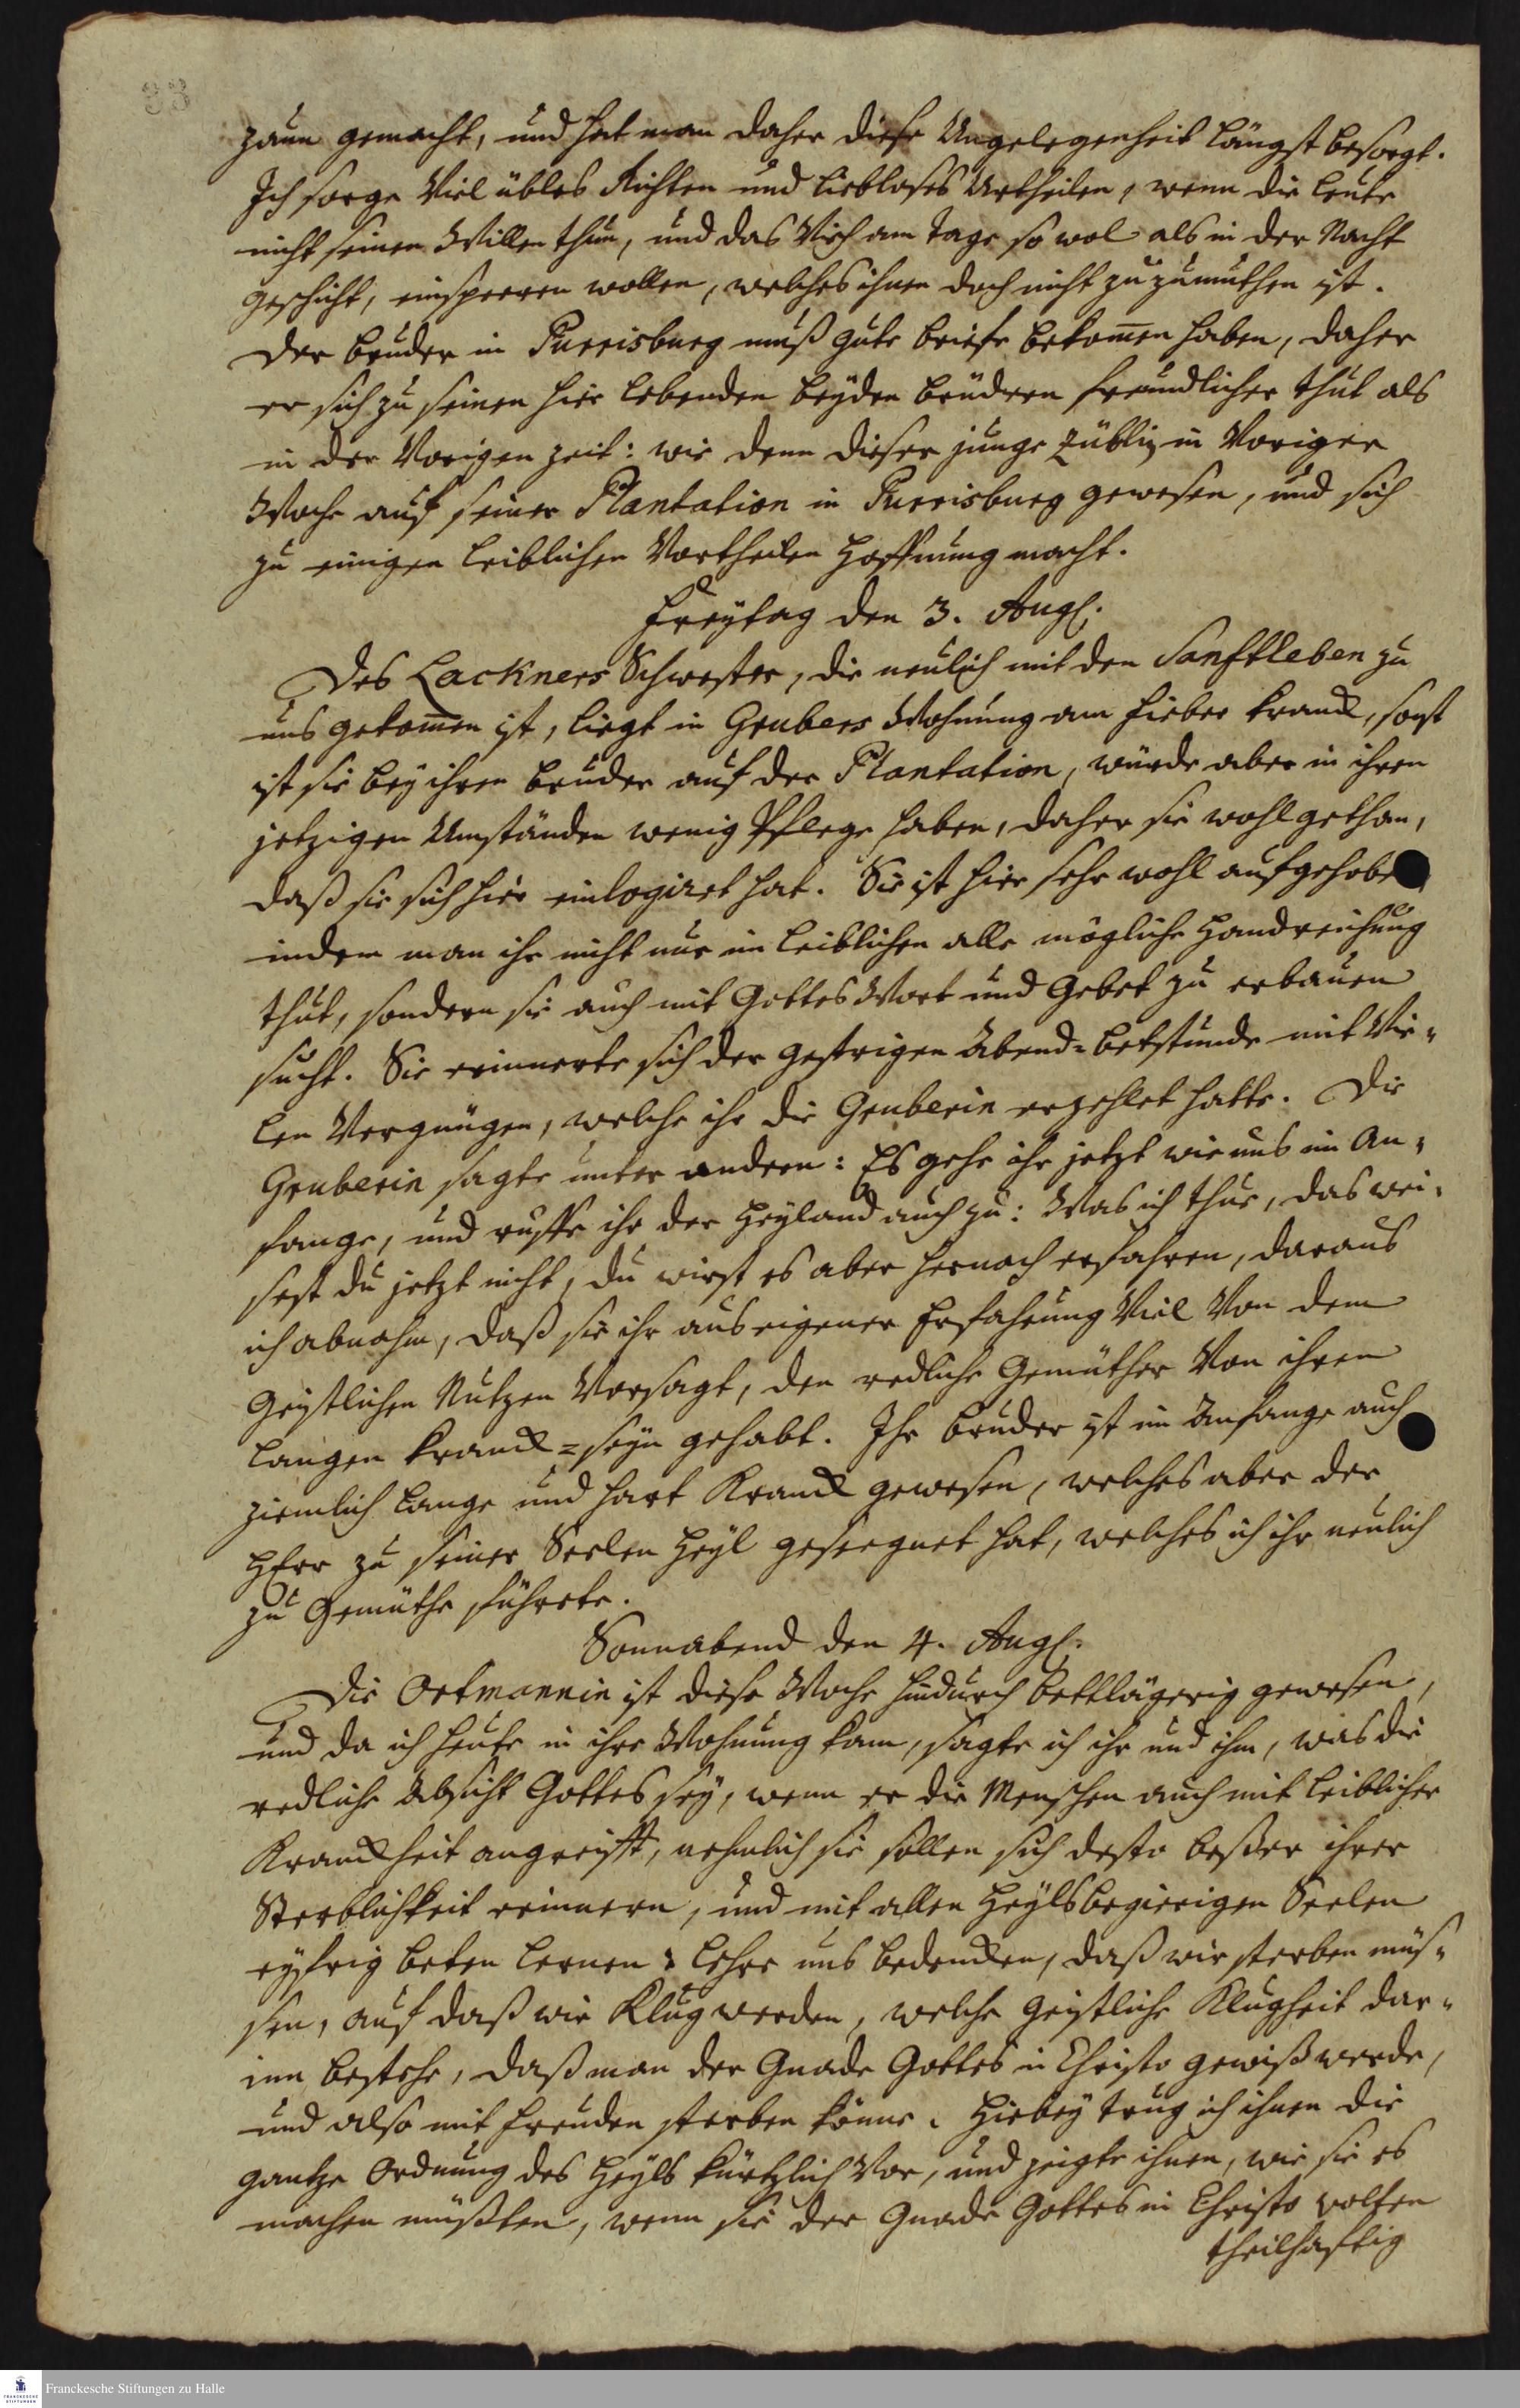 zaun gemacht, und hat man daher diese Angelegenheit längst besorgt.
Ich sorge viel übles Richten und liebloses Urtheilen, wenn die Leute
nicht seinen Willen thun, und das Vieh am Tage so wol als in der Nacht
geschicht, einsperren wollen, welches ihnen doch nicht zuzumuthen ist.
Der Bruder in Purrisburg muß gute Briefe bekom̅en haben, daher
er sich zu seinen hier lebenden beyden Brüdern freundlicher thut als
in der vorigen Zeit: wie denn dieser junge Züblin in voriger
Woche auf seiner Plantation in Purrisburg gewesen, und sich
zu einigen leiblichen Vortheilen Hoffnung macht.
Freytag den 3. Aug.
Des Lackners Schwester, die neulich mit den Sanftleben zu
uns gekom̅en ist, liegt in Grubers Wohnung am Fieber kranck, sonst
ist sie bey ihren Bruder auf der Plantation, würde aber in ihren
jetzigen Umständen wenig Pflege haben, daher sie wohl gethan,
daß sie sich hier einlogiret hat. Sie ist hier sehr wohl aufgehoben
indem man ihr nicht nur im leiblichen alle mögliche Handreichung
thut, sondern sie auch mit Gottes Wort und Gebet zu erbauen
sucht. Sie erinnerte sich der gestrigen Abend-Betstunde mit vie-
len Vergnügen, welche ihr die Gruberin erzehlet hatte. Die
Gruberin sagte unter andern: Es gehe ihr jetzt wie uns im An-
fange, und ruffe ihr der Heyland auch zu: Was ich thue, das wei-
sest du jetzt nicht, du wirst es aber hernach erfahren, daraus
ich abnahm, daß sie ihr aus eigener Erfahrung viel von dem
geistlichen Nutzen vorsagt, den redliche Gemüther von ihren
langen kranck-seyn gehabt. Ihr Bruder ist im Anfange auch
ziemlich lange und hart kranck gewesen, welches aber der
HErr zu seiner Seelen Heyl gesegnet hat, welches ich ihr neulich
zu Gemüthe führete.
Sonnabend den 4. Aug.
Die Ortmannin ist diese Woche hindurch bettlägerig gewesen,
und da ich heute in ihre Wohnung kam, sagte ich ihr und ihm, was die
redliche Absicht Gottes sey, wenn er die Menschen auch mit leiblicher
Kranckheit angreifft, nehmlich sie sollen sich desto beßer ihrer
Sterblichkeit erinnern, und mit allen Heylsbegierigen Seelen
eyfrig beten lernen: Lehre uns bedencken, daß wir sterben müs-
sen, auf daß wir klug werden, welche geistliche Klugheit dar-
inn bestehe, daß man der Gnade Gottes in Christo gewiß werde,
und also mit Freuden sterben könne. Hiebey trug ich ihnen die
gantze Ordnung des Heyls kürtzlich vor, und zeigte ihnen, wie sie es
machen müßten, wenn sie der Gnade Gottes in Christo wolten
theilhafftig
Franckesche Stiftungen zu Halle